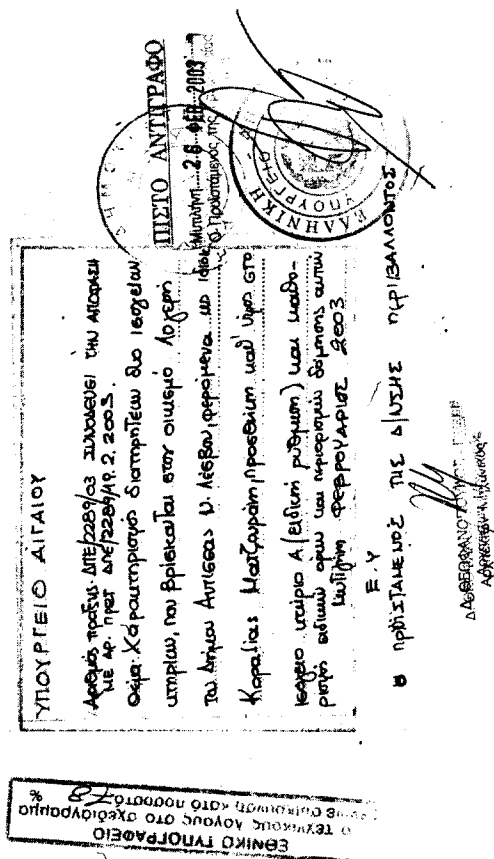 ΥΠΟΥΡΓΕΙΟ ΑΙΓΑΙΟΥ
Αριθμός πράξης: ΔΠΕ/2289/03 ΣΥΝΟΔΕΥΕΙ ΤΗΝ ΑΠΟΦΑΣΗ
ΜΕ ΑΡ. ΠΡΩΤ ΔΠΕ/2289/19.2.2003.
Θέμα: Χαρακτηρισμός διατηρητέων δύο ισογείων
κτηρίων, που βρίσκονται στον οικισμό
του Δήμου Αντίσσας Ν. Λέσβου, φερόμενα ως ιδιοκ.
Κοραλίας Ματζουράνη, προσθήκη καθ' ύψος στο
ισόγειο κτίριο Α (ειδική ρύθμιση) και καθο-
ρισμός ειδικών όρων και περιορισμών δόμησης αυτών
Μυτιλήνη ΦΕΒΡΟΥΑΡΙΟΣ 2003
Ε.Υ
Η ΠΡΟΪΣΤΑΜΕΝΟΣ ΤΗΣ Δ/ΝΣΗΣ ΠΕΡΙΒΑΛΛΟΝΤΟΣ
ΠΙΣΤΟ ΑΝΤΙΓΡΑΦΟ
Μυτιλήνη 26 ΦΕΒ. 2003
Ο Προϊστάμενος της
ΕΛΛΗΝΙΚΗ
ΥΠΟΥΡΓΕΙΟ
ΕΘΝΙΚΟ ΤΥΠΟΓΡΑΦΕΙΟ
τεχνικούς λόγους στο σχεδιόγραμμα
σμίκρυνση κατά ποσοστό 78 %